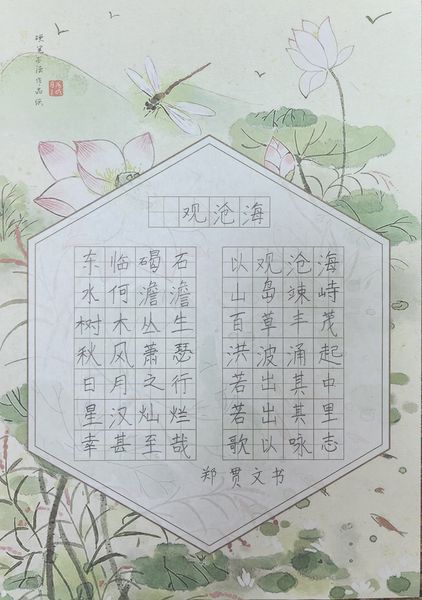 硬笔书法作品纸
观沧海
东临碣石 以观沧海
水何澹澹 山岛竦峙
树木丛生 百草丰茂
秋风萧瑟 洪波涌起
日月之行 若出其中
星汉灿烂 若出其里
幸甚至哉 歌以咏志
郑贯文书